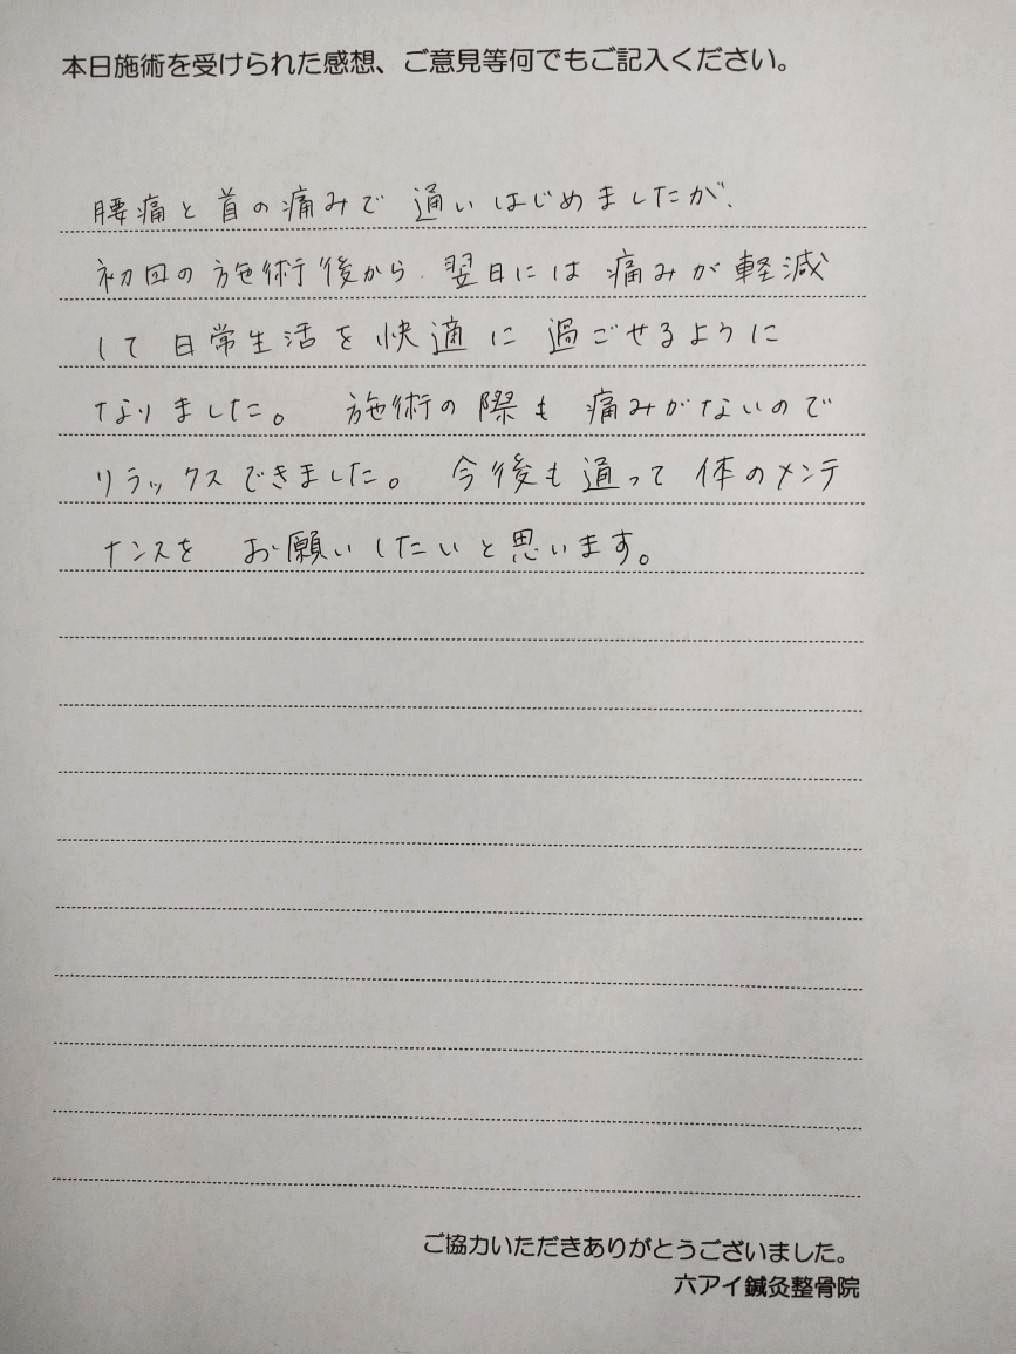 本日施術を受けられた感想、ご意見等何でもご記入ください。
腰痛と首の痛みで通いはじめましたが、
初回の施術後から、翌日には痛みが軽減
して日常生活を快適に過ごせるように
なりました。施術の際も痛みがないので
リラックスできました。今後も通って体のメンテ
ナンスをお願いしたいと思います。
ご協力いただきありがとうございました。
六アイ鍼灸整骨院